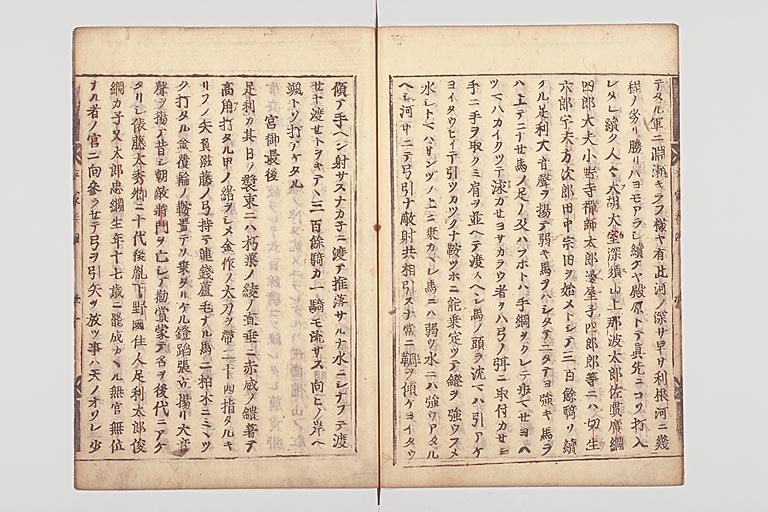 テタル軍ニ淵瀬キラフ様ヤ有此河ノ深サ早サ利根河ニ幾
程ノ劣リ勝リハヨモアラシ續ケヤ殿原トテ真先ニコソ打入
レタレ續ク人々大胡大室深須山上那波太郎佐貫廣綱
四郎大夫小野寺禅師太郎邊屋子四郎郎等ニハ切生
六郎宇夫方次郎田中宗田ヲ始メトシテ三百餘騎リ續
クル足利大音聲ヲ揚テ弱キ馬ヲハシタテニタテヨ強キ馬ヲ
ハ上テニ馬ノ足ノ及ハフホトハ手綱ヲクレテ歩マせヨハ
ツマハカイクツテ泳カせヨサカラウ者ヲハ弓ノ弭ニ取付カせヨ
手ニ手ヲ取クミ肩ヲ並ヘテ渡スヘシ馬ノ頭ラ沈マハ引アケ
ヨイタウヒイテ引ツカツクナ鞍ツホニ能乗定ツテ鐙ヲ強ウフメ
水シトマハサンツノ上ニ乗カヽレ馬ニハ弱ウ水ニハ強ウアタル
ヘシ河中ニテ弓引ナ敵射共相引スナ常ニ錣ヲ傾ケヨイタウ
傾テ手ヘン射サスナカ子ニ渡テ推落サルナ水ニシナフテ渡
せヤ渡せトヲキテヽ三百餘騎カ一騎モ流サス向ヒノ岸ヘ
颯トソ打アケタル
宮御最後
足利カ其日ノ装束ニハ朽葉ノ綾ノ直垂ニ赤威ノ鎧著テ
高角打タル甲ノ緒ヲシメ金作ノ太刀ヲ帯二十四指タルキ
リフノ矢負滋藤ノ弓持テ連銭蘆毛ナル馬ニ柏木ニミヽツ
ク打タル金覆輪ノ鞍置テソ乗タリケル鐙踏張立揚リ大音
聲ヲ揚テ昔シ朝敵将門ヲ亡シテ勧賞蒙テ名ヲ後代ニアケ
タリシ俵藤太秀郷ニ十代後胤下野國住人足利太郎俊
綱カ子又太郎忠綱生年十七歳ニ罷成カヽル無官無位
ナル者ノ宮ニ向参ラせテ弓ヲ引矢ヲ放ツ事ハ天ノオソレ少